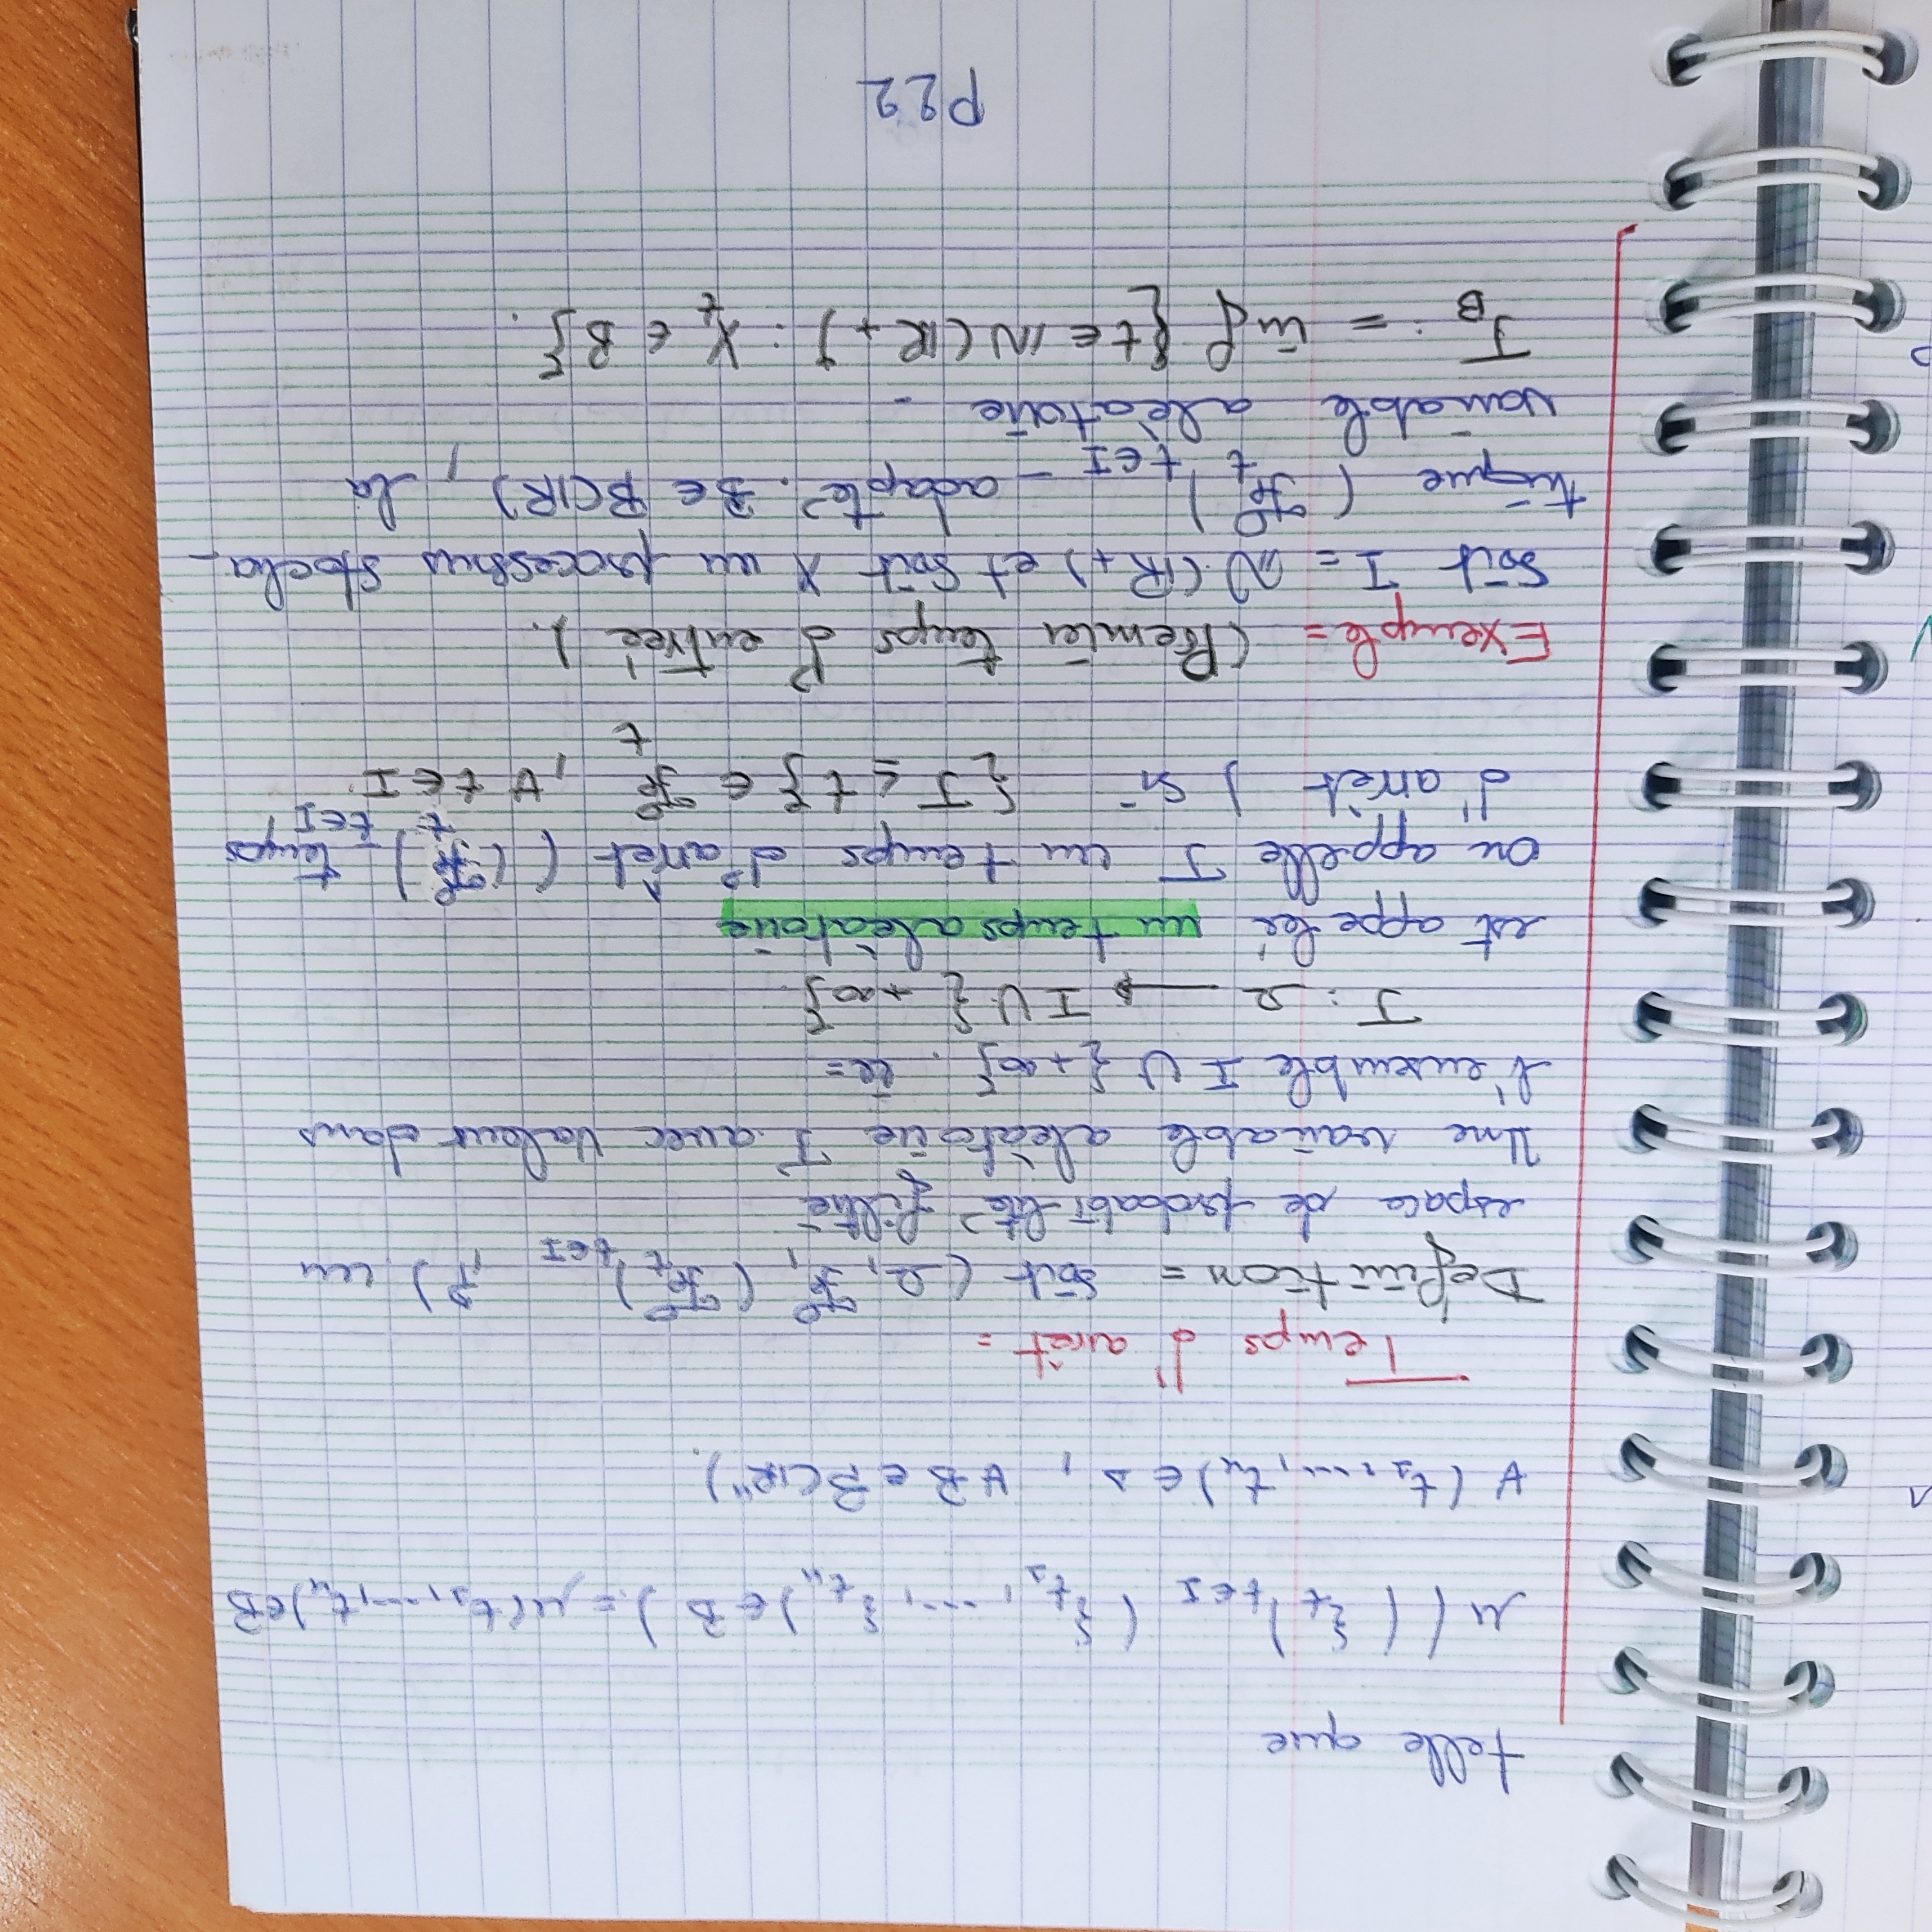 telle que
μ((ξ_t)_{t∈I} (ξ_{t_1}, ..., ξ_{t_n}) ∈ B) = μ(t_1, ..., t_n) ∈ B
∀ (t_1, ..., t_n) ∈ s, ∀ B ∈ B(ℝⁿ).
Temps d'arrêt =
Définition = Soit (Ω, F, (F_t)_{t∈I}, P) un
espace de probabilité filtré
Une variable alèàtoire T avec Valeur dans
l'ensemble I ∪ {+∞}. ie =
T : Ω → I ∪ { +∞}.
est appeleé un temps alèatoire
on appelle T un temps d'arrêt ((F_t)_{t∈I} - temps
d'arrêt) si {T ≤ t} ∈ F_t, ∀ t ∈ I
Exemple = (Premier temps d'entreé).
Soit I = ℕ (ℝ+) et Soit X un processus stocha-
tique (F_t)_{t∈I} - adapté. B ∈ B(ℝ), la
variable alèatoire -
T_B := inf {t ∈ ℕ (ℝ+) : X_t ∈ B}.
P22